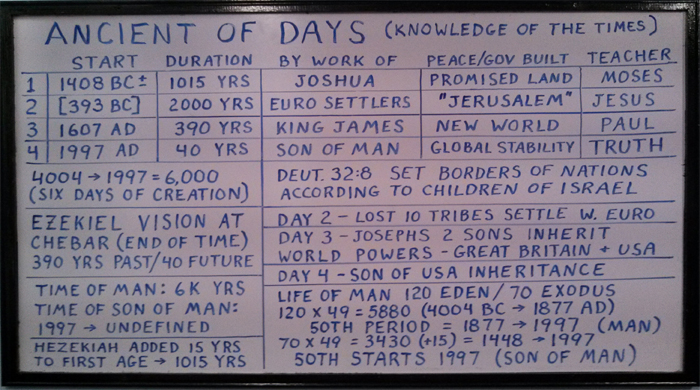 ANCIENT OF DAYS (KNOWLEDGE OF THE TIMES)
START DURATION BY WORK OF PEACE/GOV BUILT TEACHER
1 1408 BC± 1015 YRS JOSHUA PROMISED LAND MOSES
2 [393 BC] 2000 YRS EURO SETTLERS "JERUSALEM" JESUS
3 1607 AD 390 YRS KING JAMES NEW WORLD PAUL
4 1997 AD 40 YRS SON OF MAN GLOBAL STABILITY TRUTH
4004 → 1997 = 6,000
(SIX DAYS OF CREATION)
EZEKIEL VISION AT
CHEBAR (END OF TIME)
390 YRS PAST/40 FUTURE
TIME OF MAN: 6K YRS
TIME OF SON OF MAN:
1997 → UNDEFINED
HEZEKIAH ADDED 15 YRS
TO FIRST AGE → 1015 YRS
DEUT. 32:8 SET BORDERS OF NATIONS
ACCORDING TO CHILDREN OF ISRAEL
DAY 2 – LOST 10 TRIBES SETTLE W. EURO
DAY 3 – JOSEPHS 2 SONS INHERIT
WORLD POWERS – GREAT BRITAIN + USA
DAY 4 – SON OF USA INHERITANCE
LIFE OF MAN 120 EDEN / 70 EXODUS
120 x 49 = 5880 (4004 BC → 1877 AD)
50TH PERIOD = 1877 → 1997 (MAN)
70 x 49 = 3430 (+15) = 1448 → 1997
50TH STARTS 1997 (SON OF MAN)